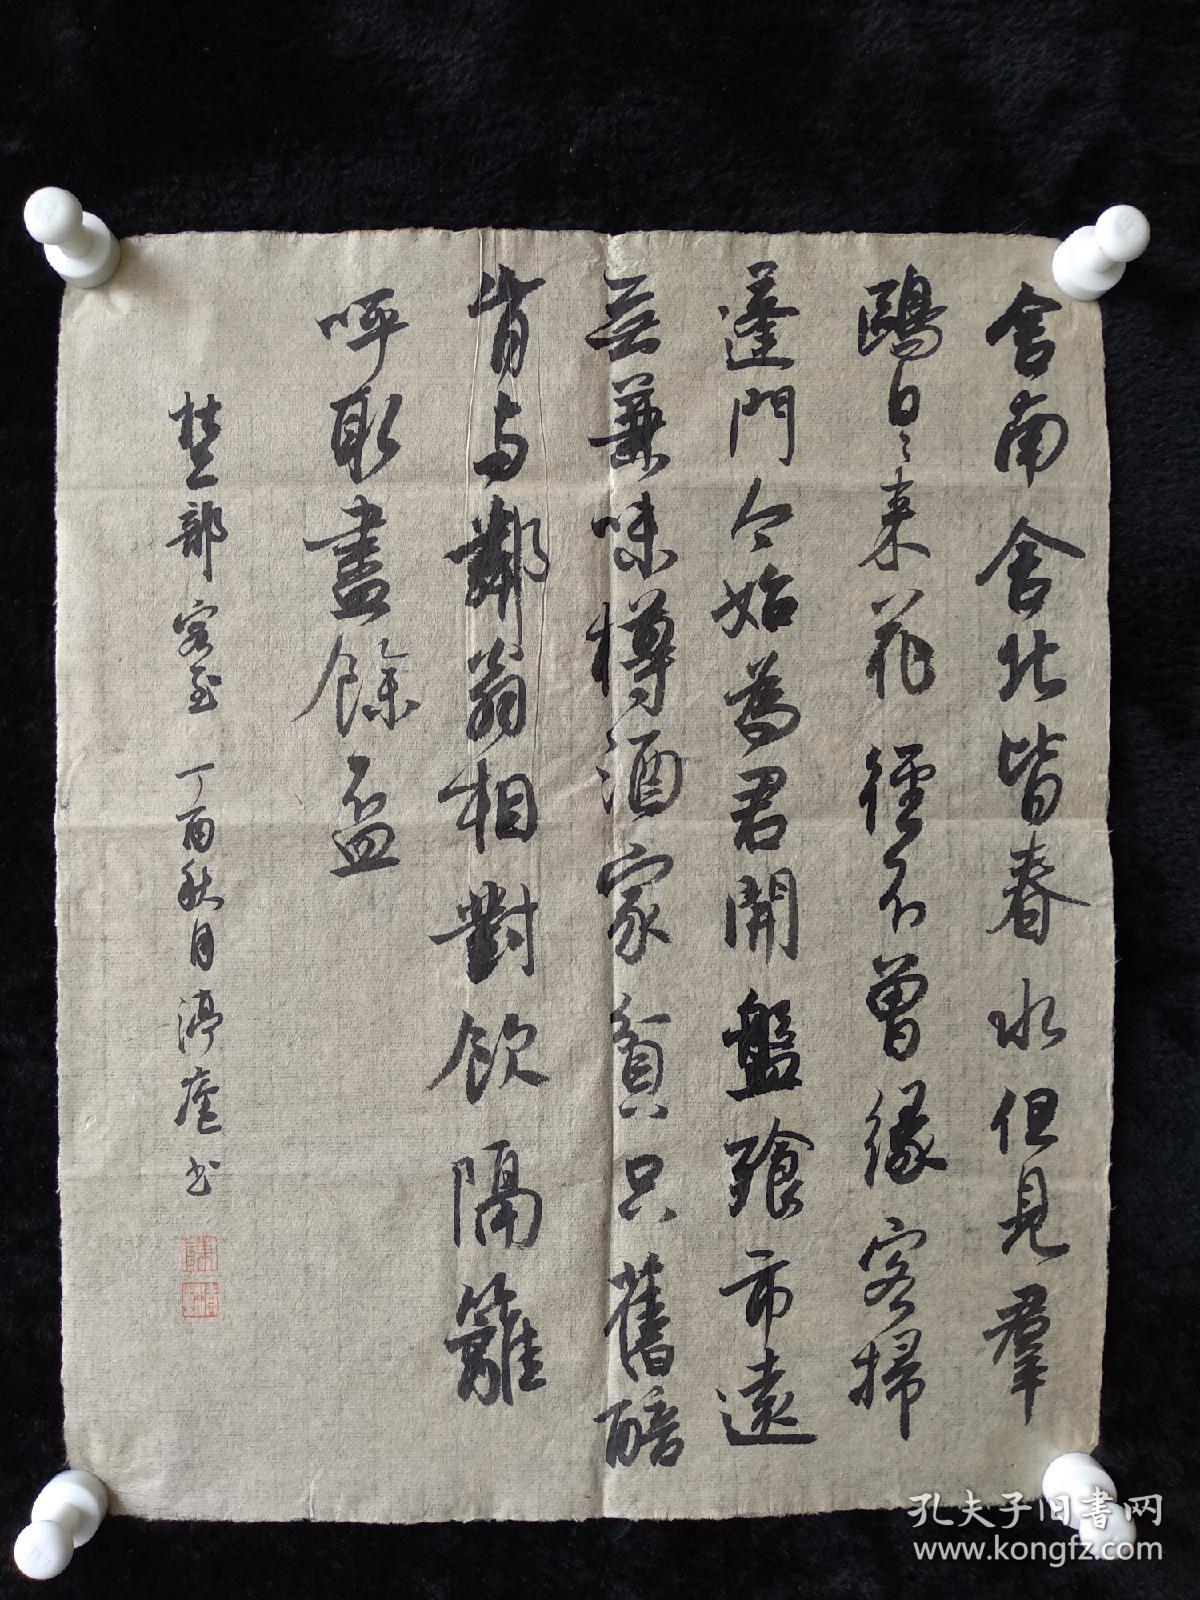 舍南舍北皆春水但見羣
鷗日〻來花徑不曾緣客掃
蓬門今始為君開盤飱市遠
無兼味樽酒家貧只舊醅
肯与鄰翁相對飲隔籬
呼取盡餘盃
杜工部客至 丁酉秋月渟 书
孔夫子旧书网
www.kongfz.com